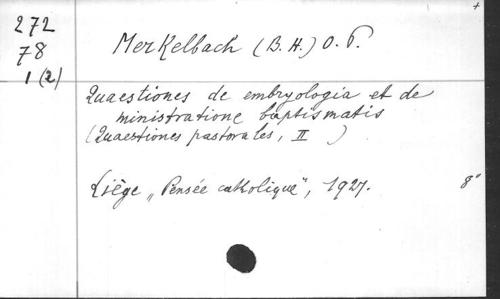 272
78
1 (2)
Merkelbach (B. H.) O. P.
Quaestiones de embryologia et de
ministratione baptismatis
(Quaestiones pastorales, II )
Liège „Pensée catholique", 1927.
8°